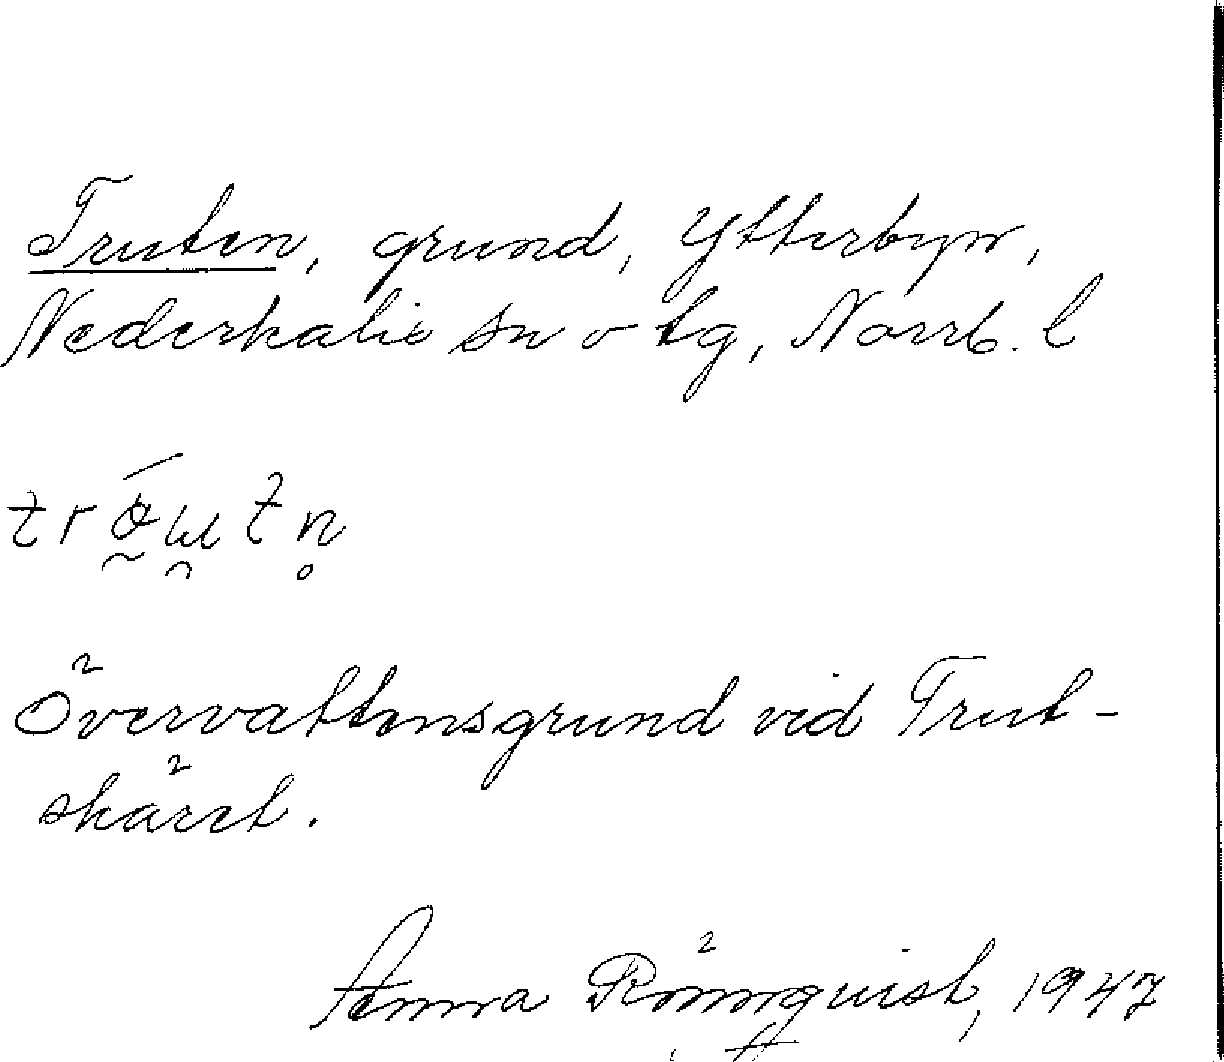 Truten, grund, Ytterbyn,
Nederkalix sn o tg, Norrb. l
Övervattensgrund vid Trut-
skäret.
Anna Rönnquist, 1947